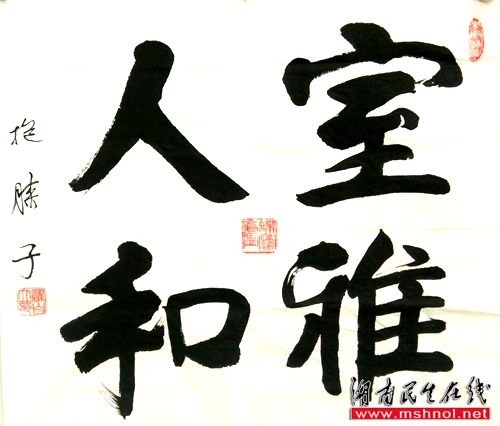 室雅
人和
抱膝子
湖南民生在线
www.mshnol.net